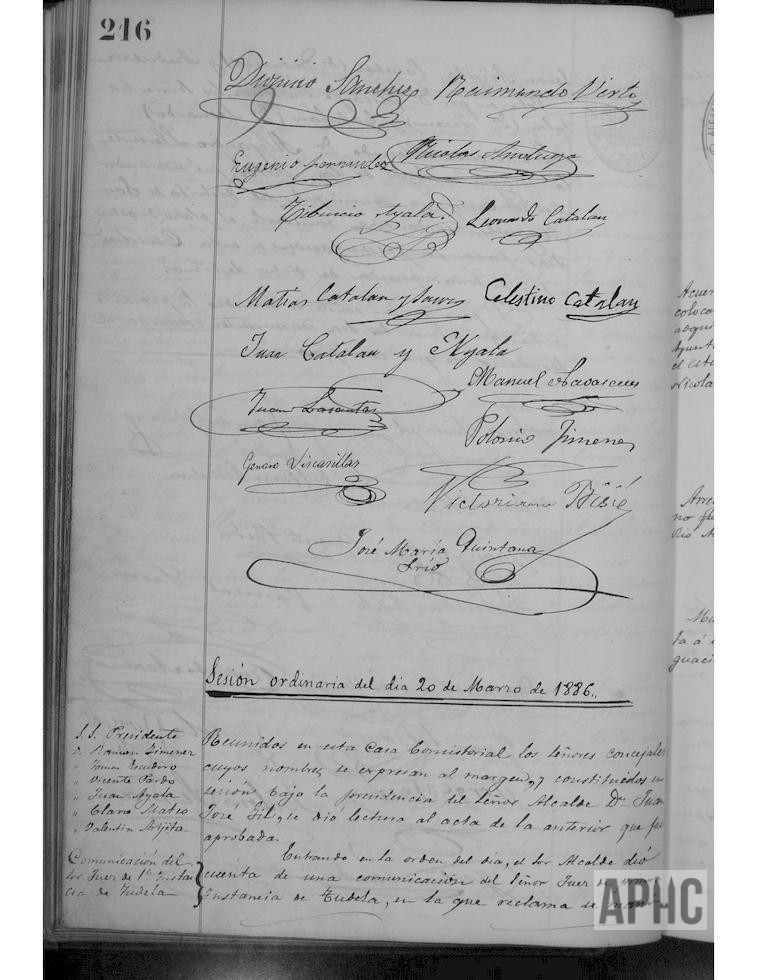 216
Dionisio Sanchez Raimundo Virto
Eugenio Fernandez Nicolas
Tiburcio Ayala Leonardo Catalan
Matias Catalan y Celestino Catalan
Juan Catalan y Ayala
Manuel
Juan
Polonio Jimenez
Genaro Viscasillas
Victoriano
José María Quintana
Srio
Sesión ordinaria del dia 20 de Marzo de 1886.,
S. S. Presidente
D. Ramon Gimenez
Tomas Escudero
" Vicente Pardo
" Juan Ayala
" Claro Mateo
" Valentin Arijita
Comunicación del
Sor Juez de 1ª Instan
cia de Tudela
Reunidos en esta Casa Consistorial los Señores concejales
cuyos nombres se expresan al margen, y constituidos en
sesion bajo la presidencia del Señor Alcalde Dn Juan
José Gil, se dió lectura al acta de la anterior que fue
aprobada.
Entrando en la orden del dia, el Sor Alcalde dió
cuenta de una comunicación del Señor Juez de
Instancia de Tudela, en la que reclama se
APHC
Acuer
coloca
adqui
Ayunt
el
Nicola
no
Rio
Ma
ta á
guaci